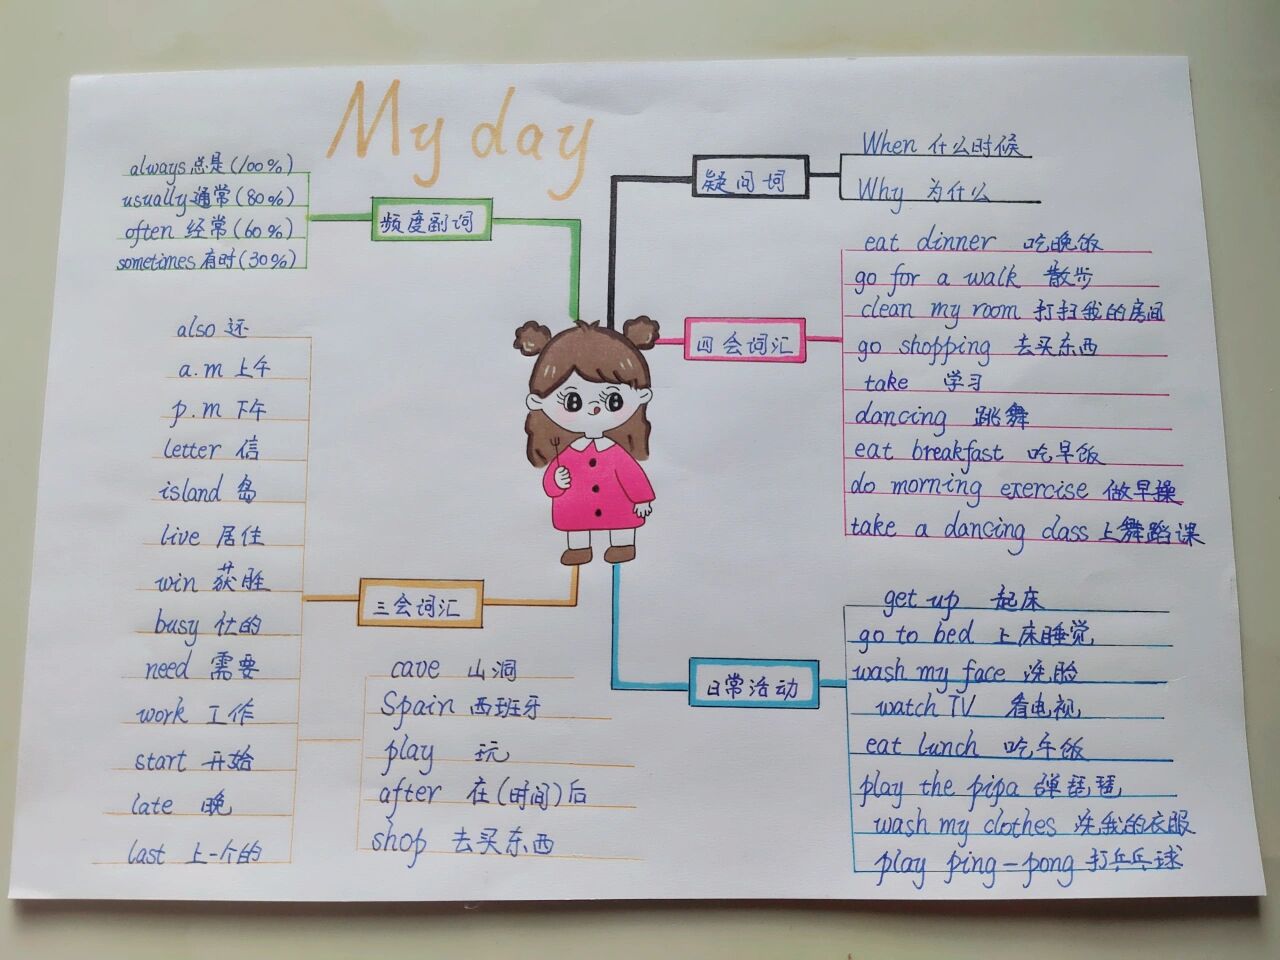 My day
always 总是(100%)
usually 通常(80%)
often 经常(60%)
sometimes 有时(30%)
频度副词
疑问词
When 什么时候
Why 为什么
四会词汇
eat dinner 吃晚饭
go for a walk 散步
clean my room 打扫我的房间
go shopping 去买东西
take 学习
dancing 跳舞
eat breakfast 吃早饭
do morning exercise 做早操
take a dancing class 上舞蹈课
also 还
a.m 上午
p.m 下午
letter 信
island 岛
live 居住
win 获胜
busy 忙的
need 需要
work 工作
start 开始
late 晚
last 上一个的
三会词汇
cave 山洞
Spain 西班牙
play 玩
after 在(时间)后
shop 去买东西
日常活动
get up 起床
go to bed 上床睡觉
wash my face 洗脸
watch TV 看电视
eat lunch 吃午饭
play the pipa 弹琵琶
wash my clothes 洗我的衣服
play ping-pong 打乒乓球